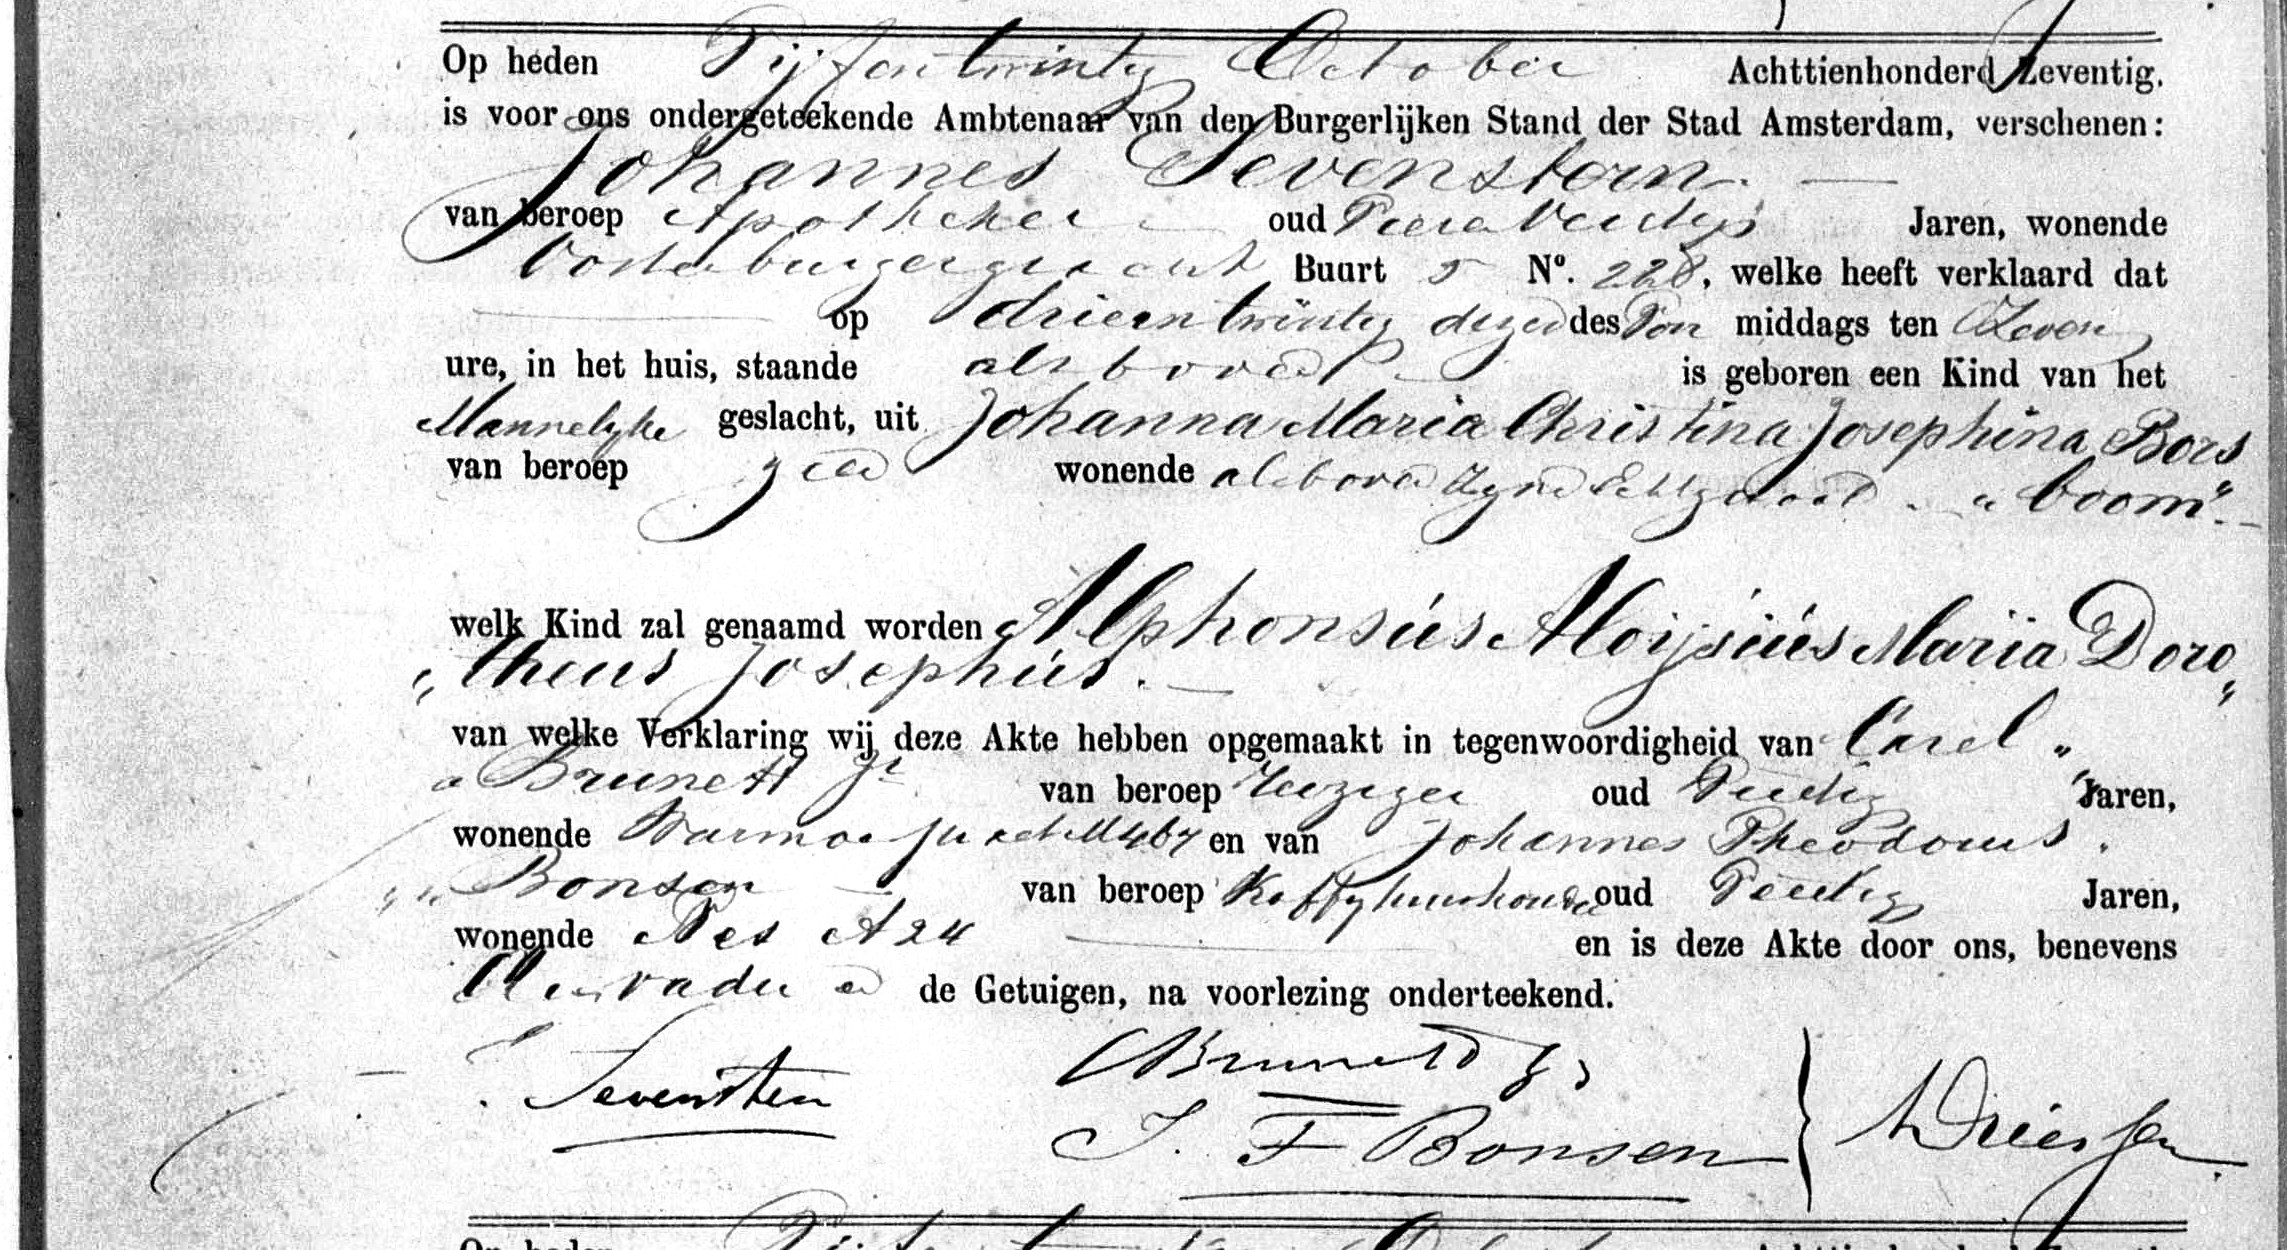 Op heden Vijfentwintig October Achttienhonderd Zeventig.
is voor ons ondergeteekende Ambtenaar van den Burgerlijken Stand der Stad Amsterdam, verschenen:
Johannes Sevenstern
van beroep Apotheker oud Jaren, wonende
Oostenburgergracht Buurt 5 No. 228, welke heeft verklaard dat
op drieentwintig dezer des Voor middags ten Zeven
ure, in het huis, staande als boven is geboren een Kind van het
Mannelyke geslacht, uit Johanna Maria Christina Josephina Bors
van beroep geen wonende als boven Zyne Echtgenoot „ boom".
welk Kind zal genaamd worden Alphonsús Aloijsiús Maria Doro„
„theus Josephús.
van welke Verklaring wij deze Akte hebben opgemaakt in tegenwoordigheid van Carel „
„ Brunett Jr van beroep Reiziger oud Jaren,
wonende Warmoesstraat M 467 en van Johannes Theodorus
„ Bonsen van beroep Koffyhuishouder oud Jaren,
wonende Nes A 24 en is deze Akte door ons, benevens
den vader en de Getuigen, na voorlezing onderteekend.
J. Sevenstern
CBrunett Jr
J. F Bonsen
ADriessen
Op heden